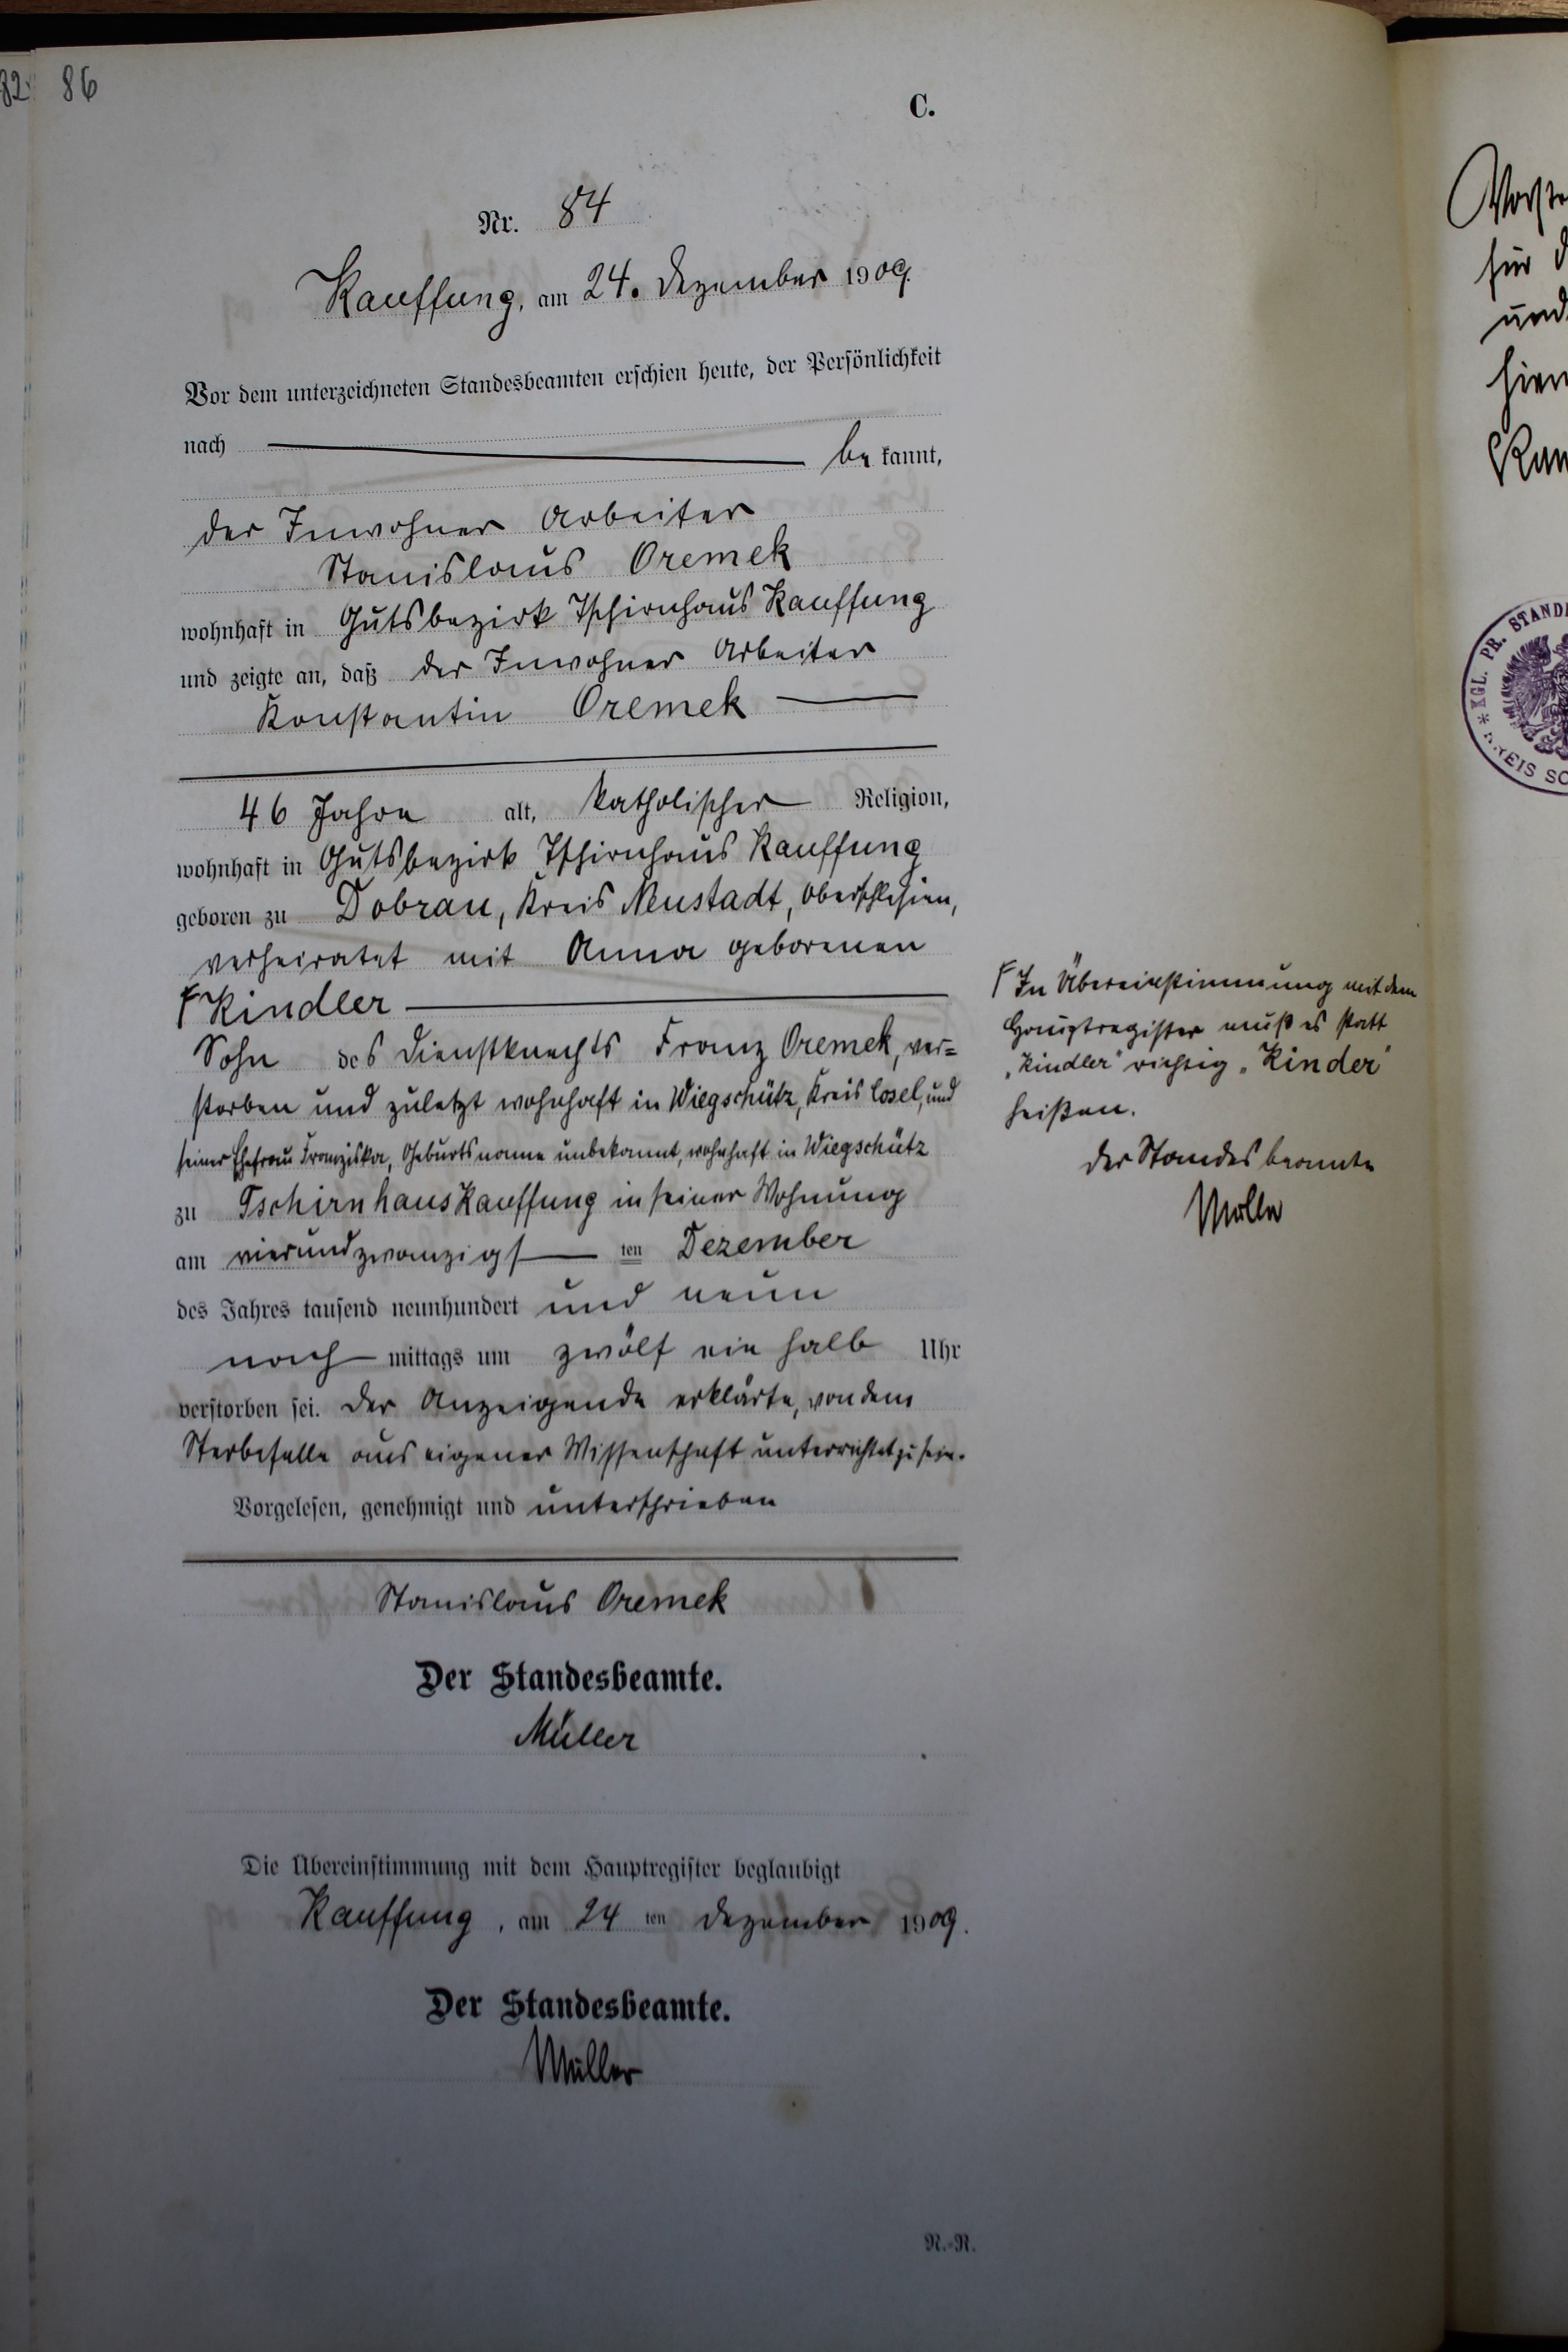 82
86
C.
Nr. 84
Kauffung, am 24. Dezember 1909.
Vor dem unterzeichneten Standesbeamten erschien heute, der Persönlichkeit
nach be kannt,
der Inwohner Arbeiter
Stanislaus Oremek
wohnhaft in Gutsbezirk Tschirnhaus Kauffung
und zeigte an, daß der Inwohner Arbeiter
Konstantin Oremek
46 Jahre alt, katholischer Religion,
wohnhaft in Gutsbezirk Tschirnhaus Kauffung
geboren zu Dobrau, Kreis Neustadt, Oberschlesien,
verheiratet mit Anna geborenen
Kindler
Sohn des Dienstknechts Franz Oremek, ver=
storben und zuletzt wohnhaft in Wiegschütz, Kreis Cosel, und
seiner Ehefrau Franziska, Geburtsname unbekannt, wohnhaft in Wiegschütz
zu Tschirnhaus Kauffung in seiner Wohnung
am vierundzwanzigs ten Dezember
des Jahres tausend neunhundert und neun
nach mittags um zwölf ein halb Uhr
verstorben sei. Der Anzeigende erklärte, von dem
Sterbefalle aus eigener Wissenschaft unterrichtet zu sein.
Vorgelesen, genehmigt und unterschrieben
Stanislaus Oremek
Der Standesbeamte.
Müller
Die Übereinstimmung mit dem Hauptregister beglaubigt
Kauffung, am 24 ten Dezember 1909.
Der Standesbeamte.
Müller
N.-R.
In Übereinstimmung mit dem
Hauptregister muß es statt
„Kindler" richtig „Kinder"
heißen.
Der Standesbeamte
Müller
für
und
KGL. PR. STANDE
KREIS SC